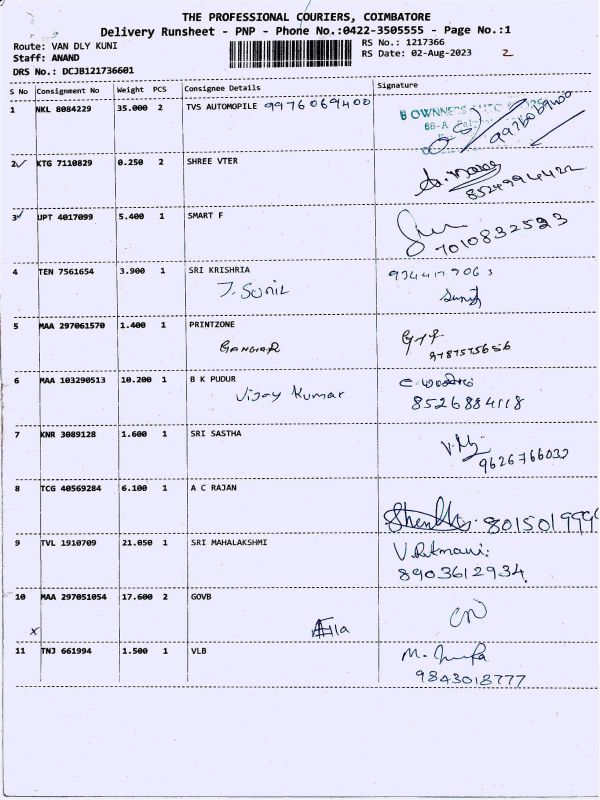 THE PROFESSIONAL COURIERS, COIMBATORE
Delivery Runsheet - PNP - Phone No.:0422-3505555 - Page No.:1
Route: VAN DLY KUNI
RS No.: 1217366
Staff: ANAND
RS Date: 02-Aug-2023 2
DRS No.: DCJB121736601
S No Consignment No Weight PCS Consignee Details Signature
1 NKL 8084229 35.000 2 TVS AUTOMOPILE 9976069400
B OWNNERS
68-A
9976069400
2 KTG 7110829 0.250 2 SHREE VTER
8524994422
3 UPT 4017099 5.400 1 SMART F
7010832523
4 TEN 7561654 3.900 1 SRI KRISHRIA
J. Sunil
Sunil
5 MAA 297061570 1.400 1 PRINTZONE
6 MAA 103290513 10.200 1 B K PUDUR
Vijay Kumar
8526884118
7 KNR 3089128 1.600 1 SRI SASTHA
9626766032
8 TCG 40569284 6.100 1 A C RAJAN
801501999
9 TVL 1910709 21.050 1 SRI MAHALAKSHMI
V. Rukmani.
8903612934.
10 MAA 297051054 17.600 2 GOVB
x
11 TNJ 661994 1.500 1 VLB
9843018777